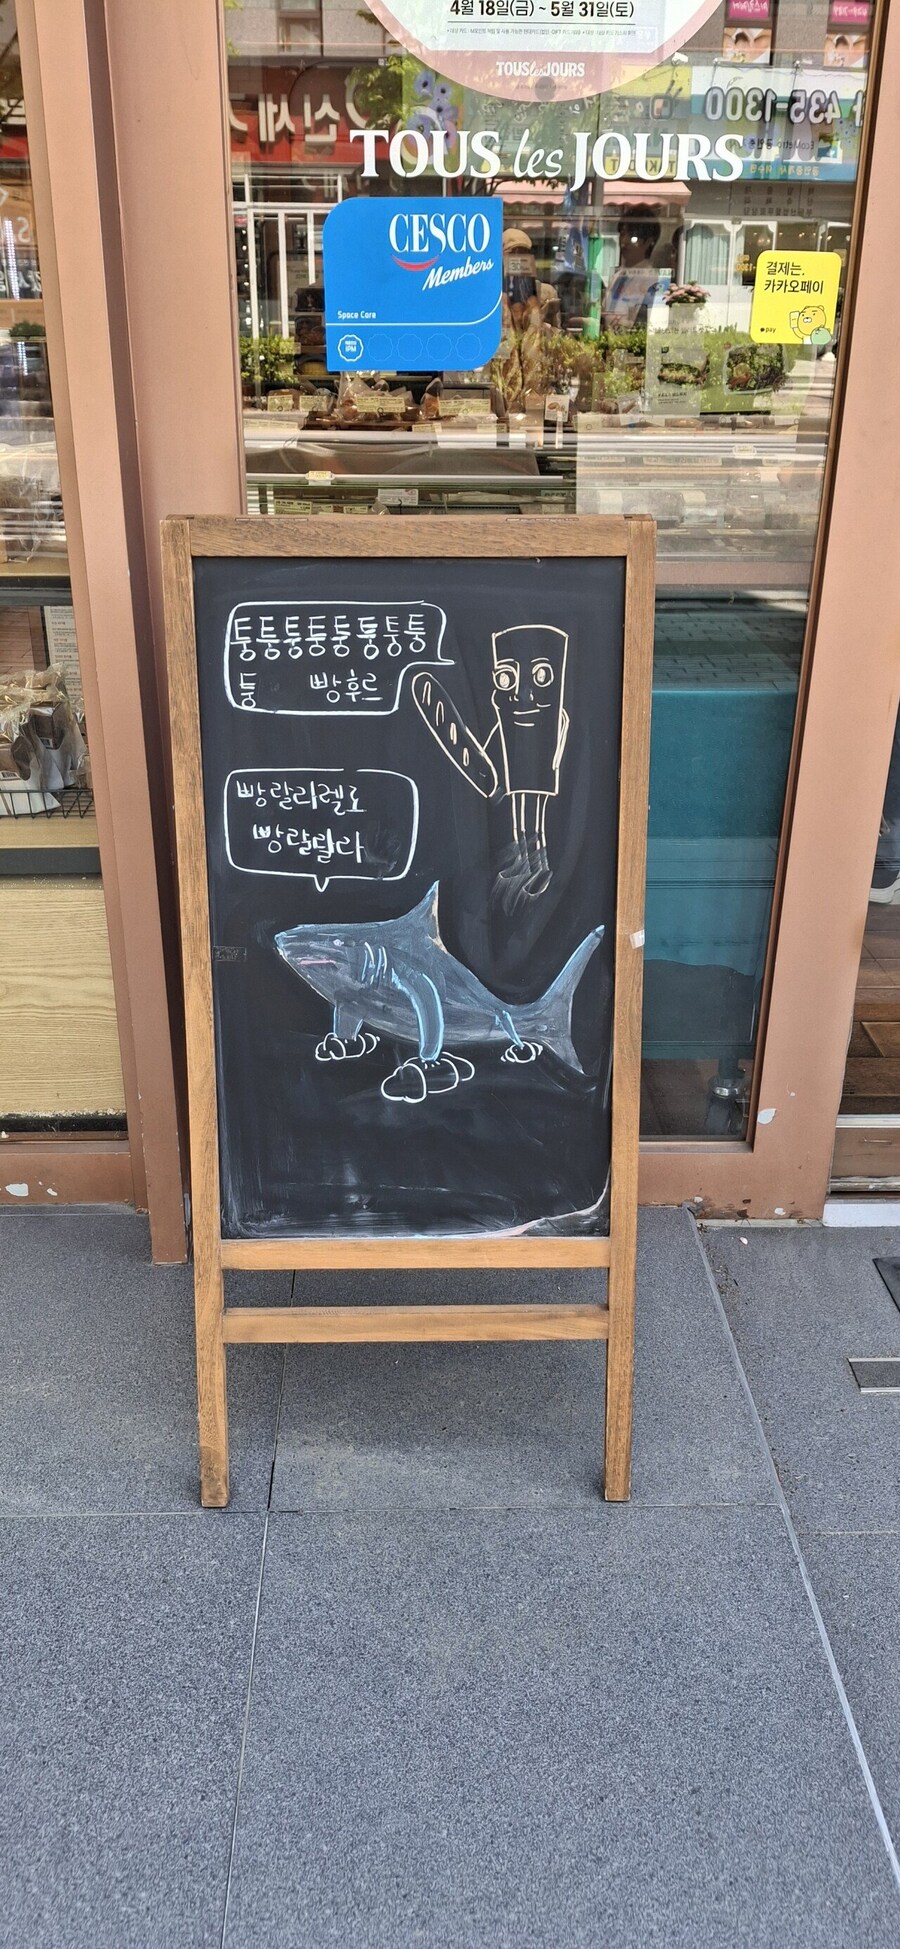 4월 18일(금) ~ 5월 31일(토)
TOUS les JOURS
TOUS les JOURS
신세
435-1300
CESCO
Members
Space Care
결제는,
카카오페이
pay
퉁퉁퉁퉁퉁퉁퉁퉁
퉁 빵후르
빵랄라렐로
빵랄랄라